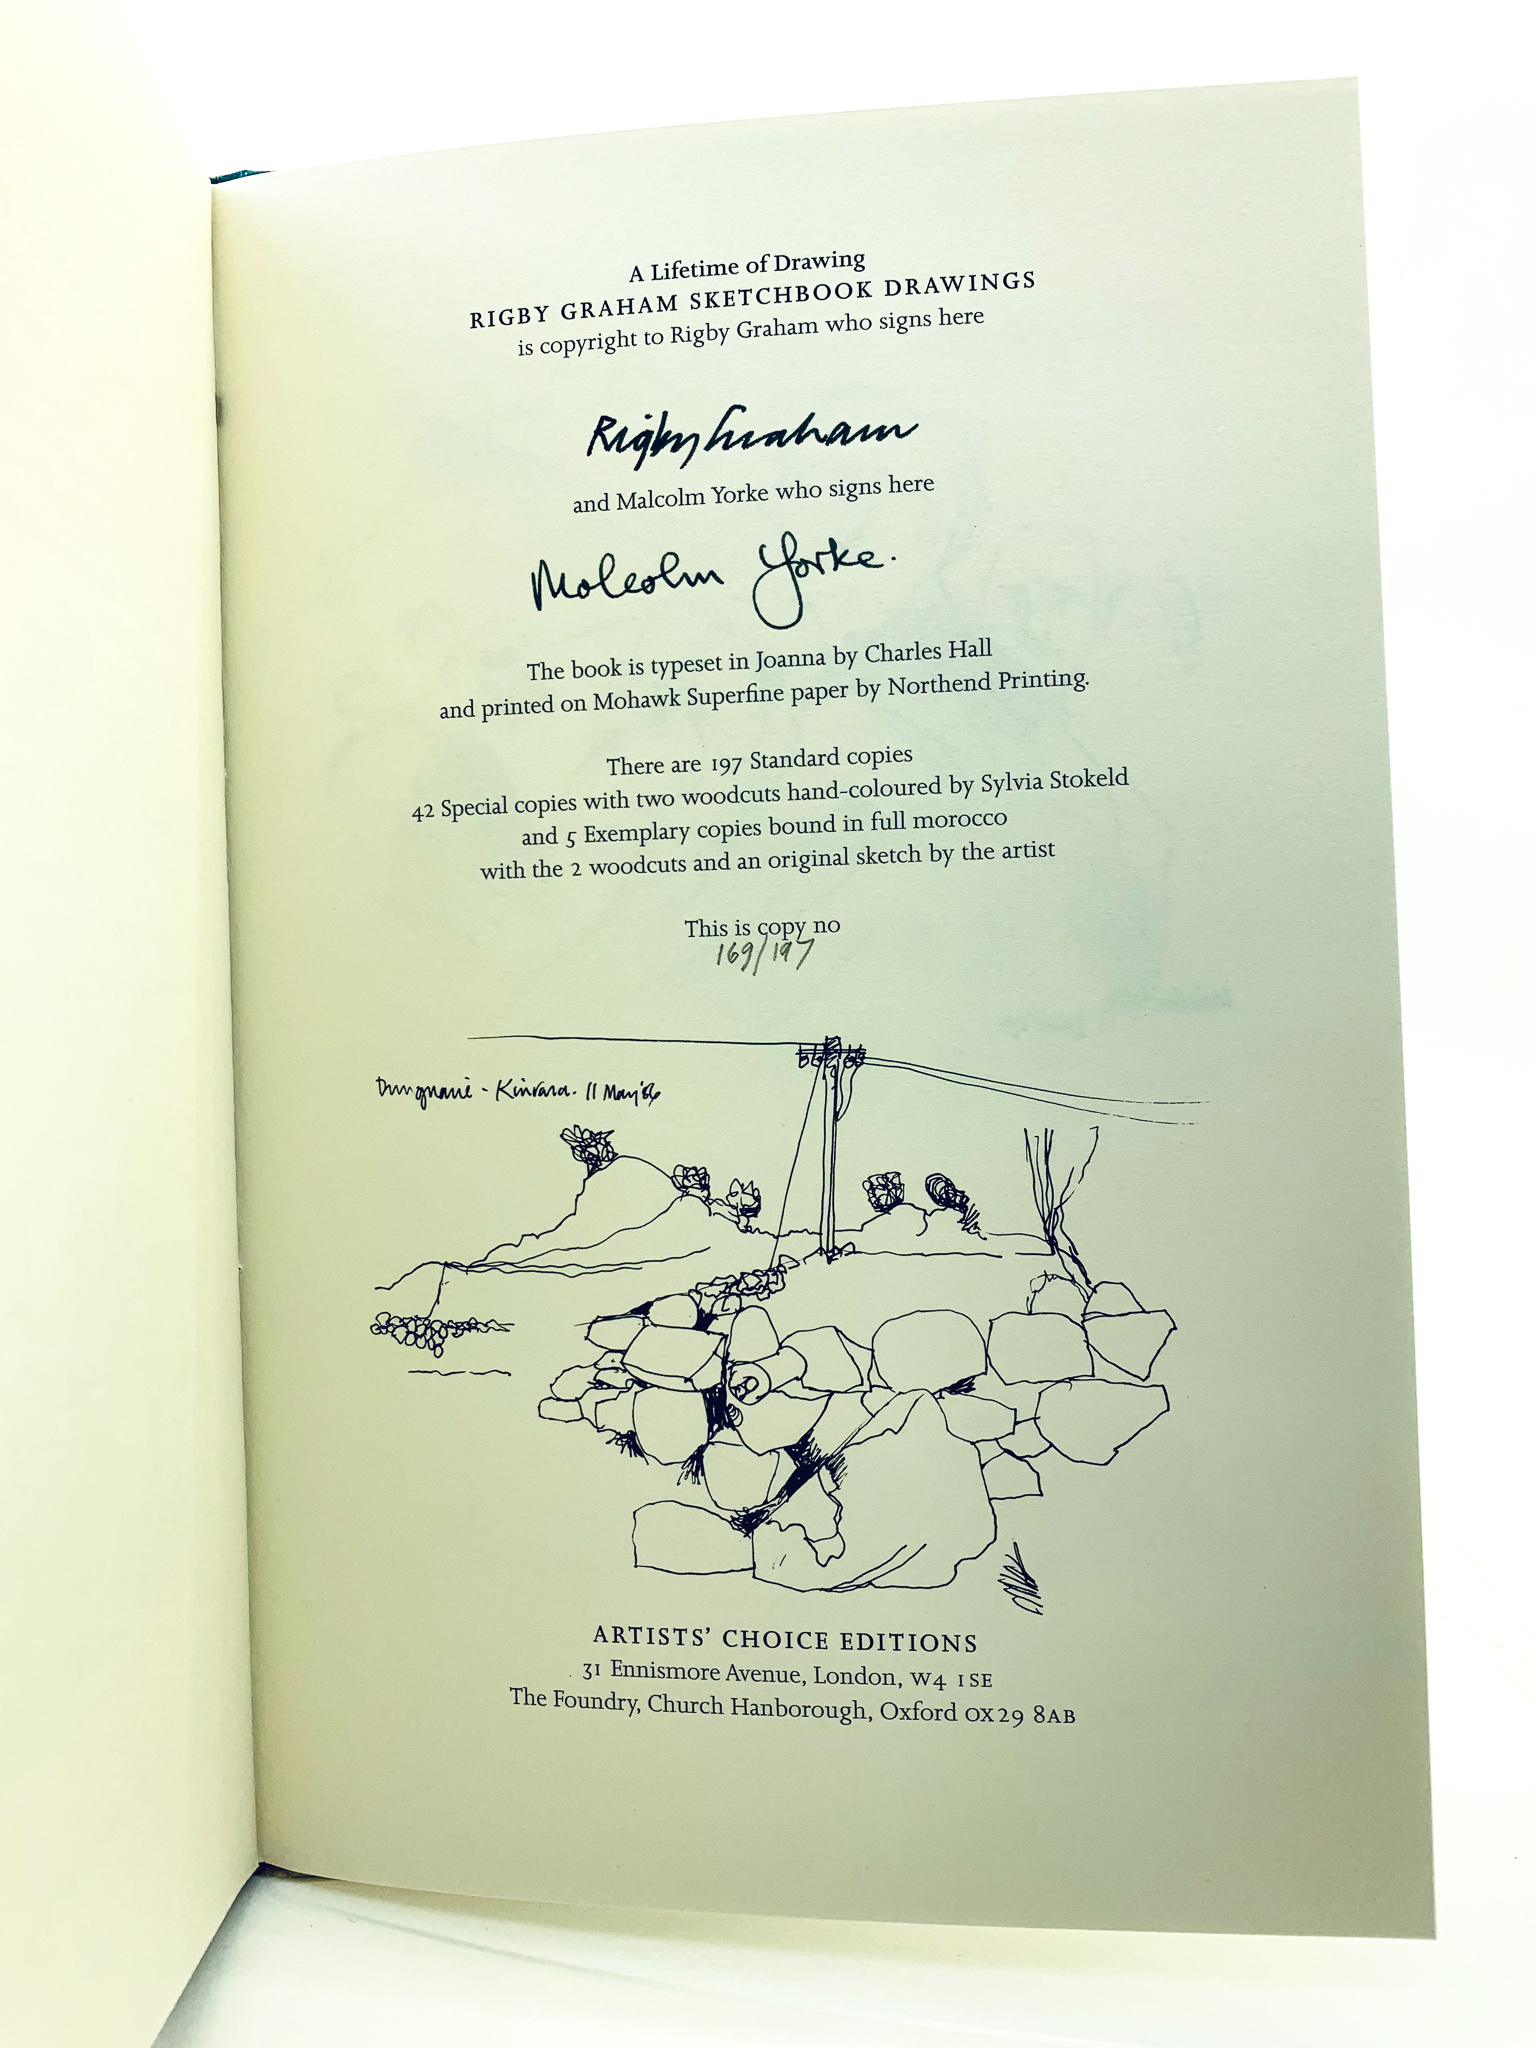 A Lifetime of Drawing
RIGBY GRAHAM SKETCHBOOK DRAWINGS
is copyright to Rigby Graham who signs here
Rigby Graham
and Malcolm Yorke who signs here
Malcolm Yorke.
The book is typeset in Joanna by Charles Hall
and printed on Mohawk Superfine paper by Northend Printing.
There are 197 Standard copies
42 Special copies with two woodcuts hand-coloured by Sylvia Stokeld
and 5 Exemplary copies bound in full morocco
with the 2 woodcuts and an original sketch by the artist
This is copy no
169/197
Kinvara. 11 May
ARTISTS' CHOICE EDITIONS
31 Ennismore Avenue, London, W4 1SE
The Foundry, Church Hanborough, Oxford OX29 8AB